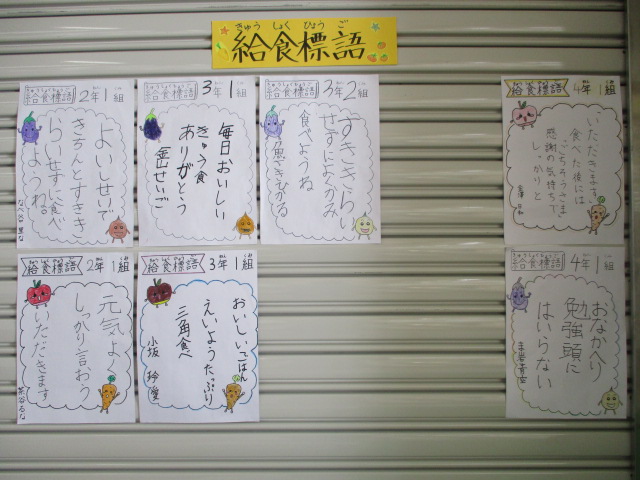 きゅう しょく ひょう ご
給食標語
給食標語 2年1組
よいしせいで
きちんとすききらいせずに食べ
ようね。
給食標語 3年1組
毎日おいしい
きゅう食
ありがとう
給食標語 3年2組
すききらい
せずによくかみ
食べようね
給食標語 4年1組
いただきます。
食べた後には
ごちそうさま
感謝の気持ちで
しっかりと
給食標語 2年1組
元気よく
しっかり言おう
いただきます
給食標語 3年1組
おいしいごはん
えいようたっぷり
三角食べ
給食標語 4年1組
おなかへり
勉強頭に
はいらない